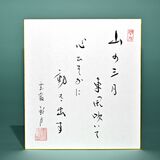 山の三月
東風吹いて
心ひそかに
動き出す